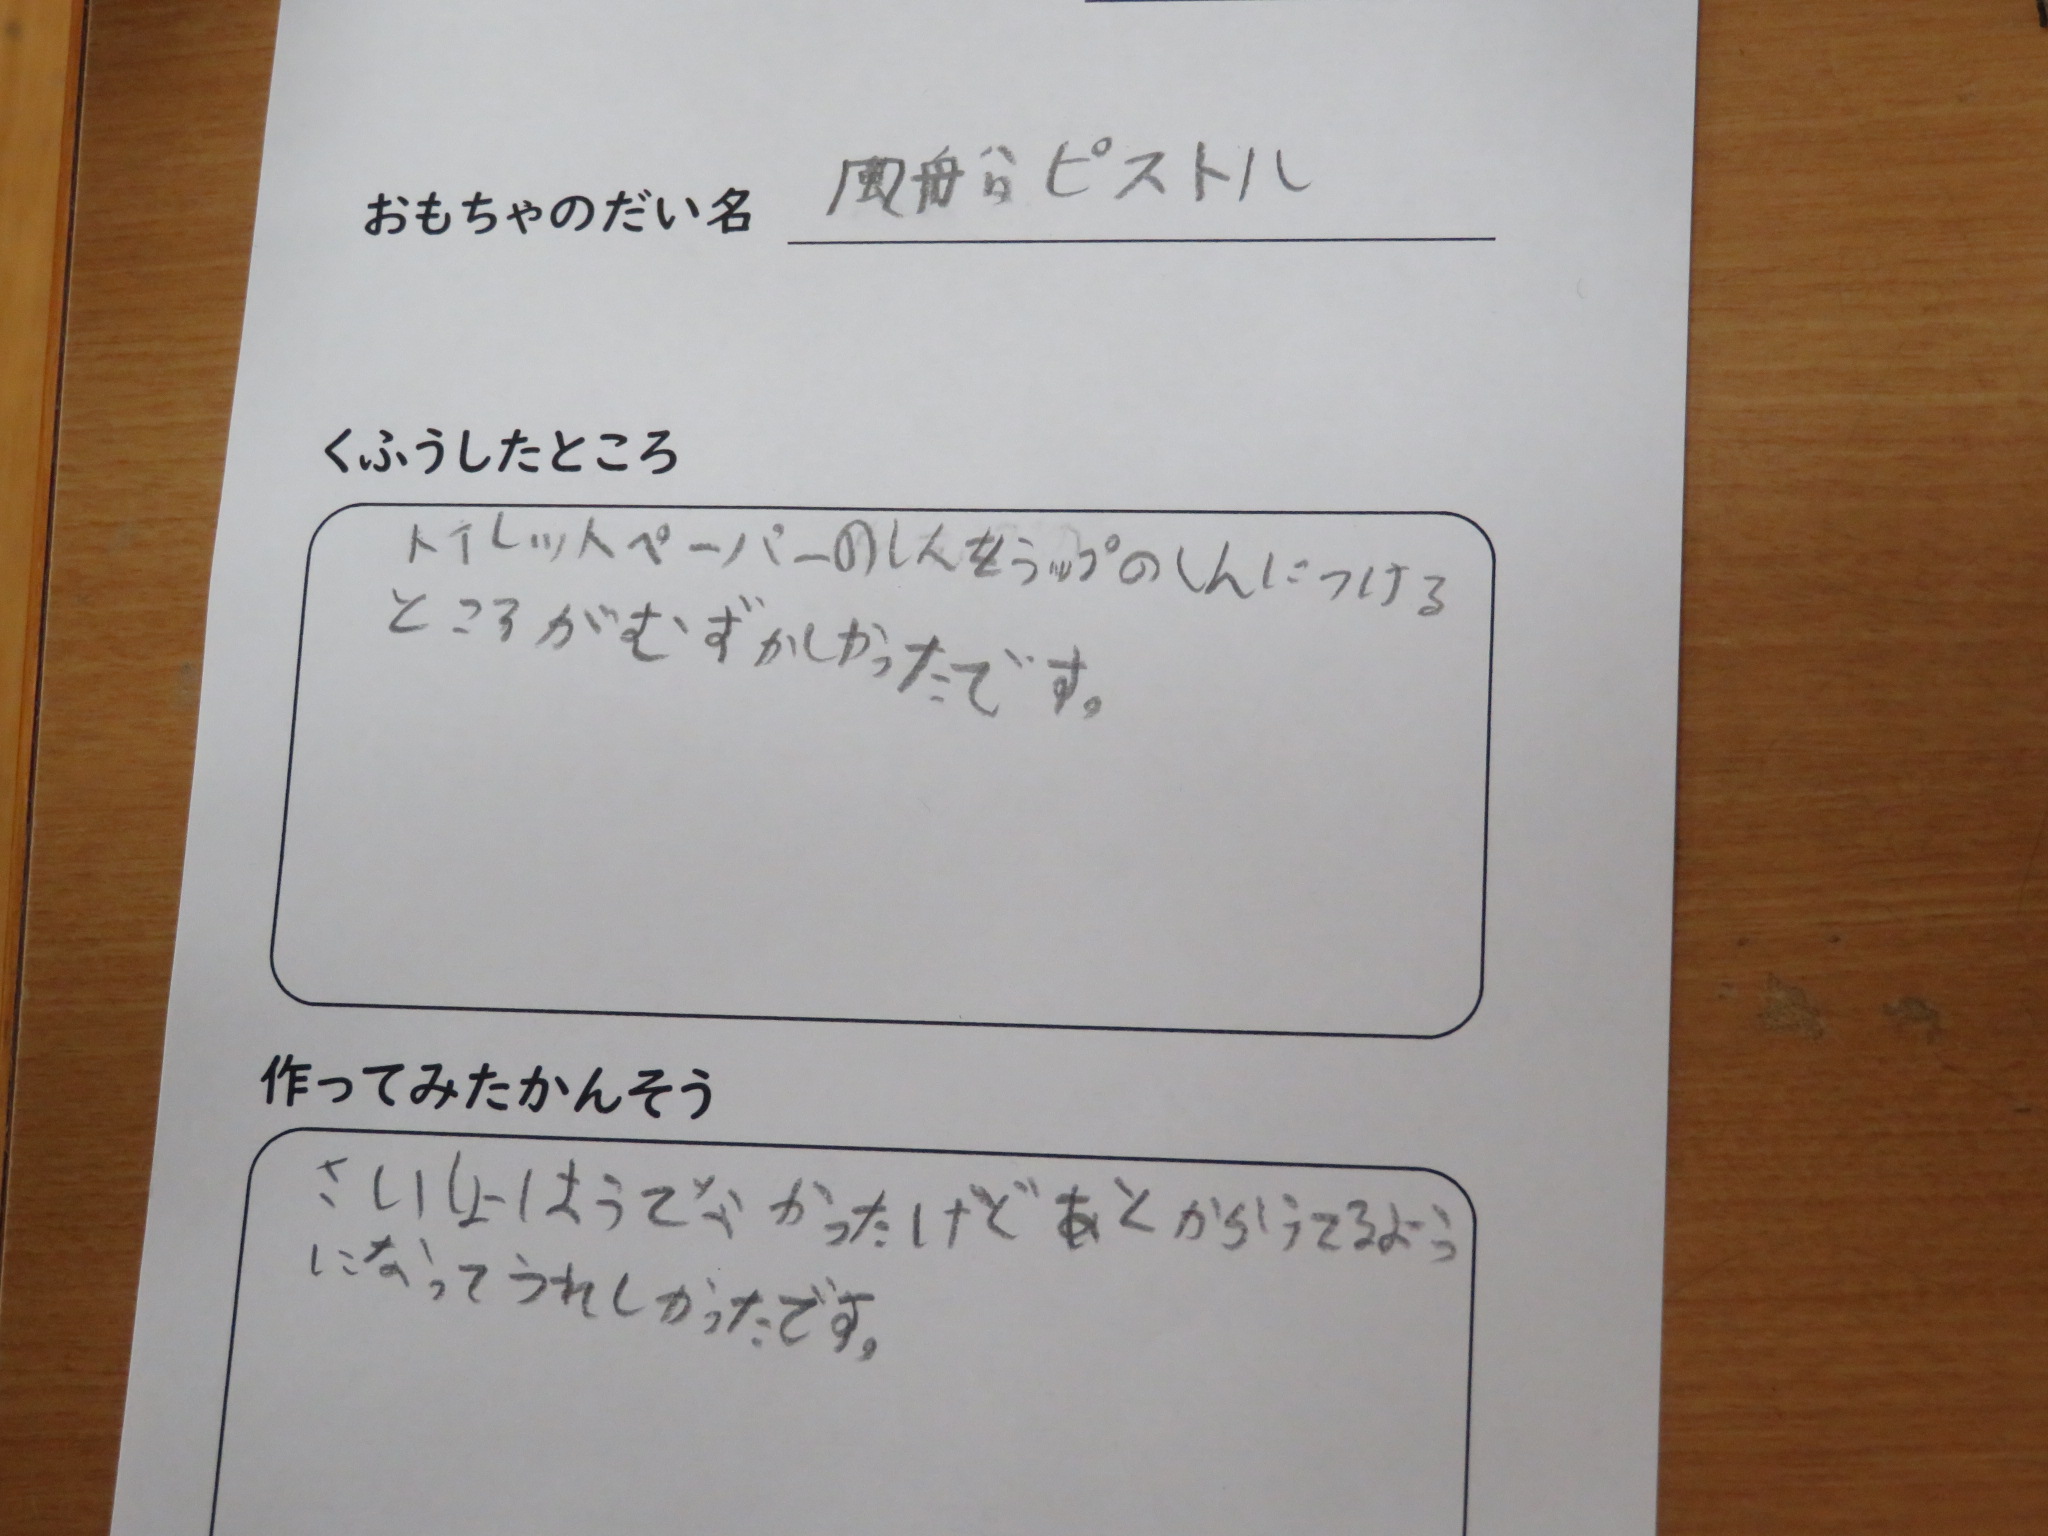 おもちゃのだい名 風船ピストル
くふうしたところ
トイレットペーパーのしんをラップのしんにつける
ところがむずかしかったです。
作ってみたかんそう
さいしょはうてなかったけどあとからうてるよう
になってうれしかったです。